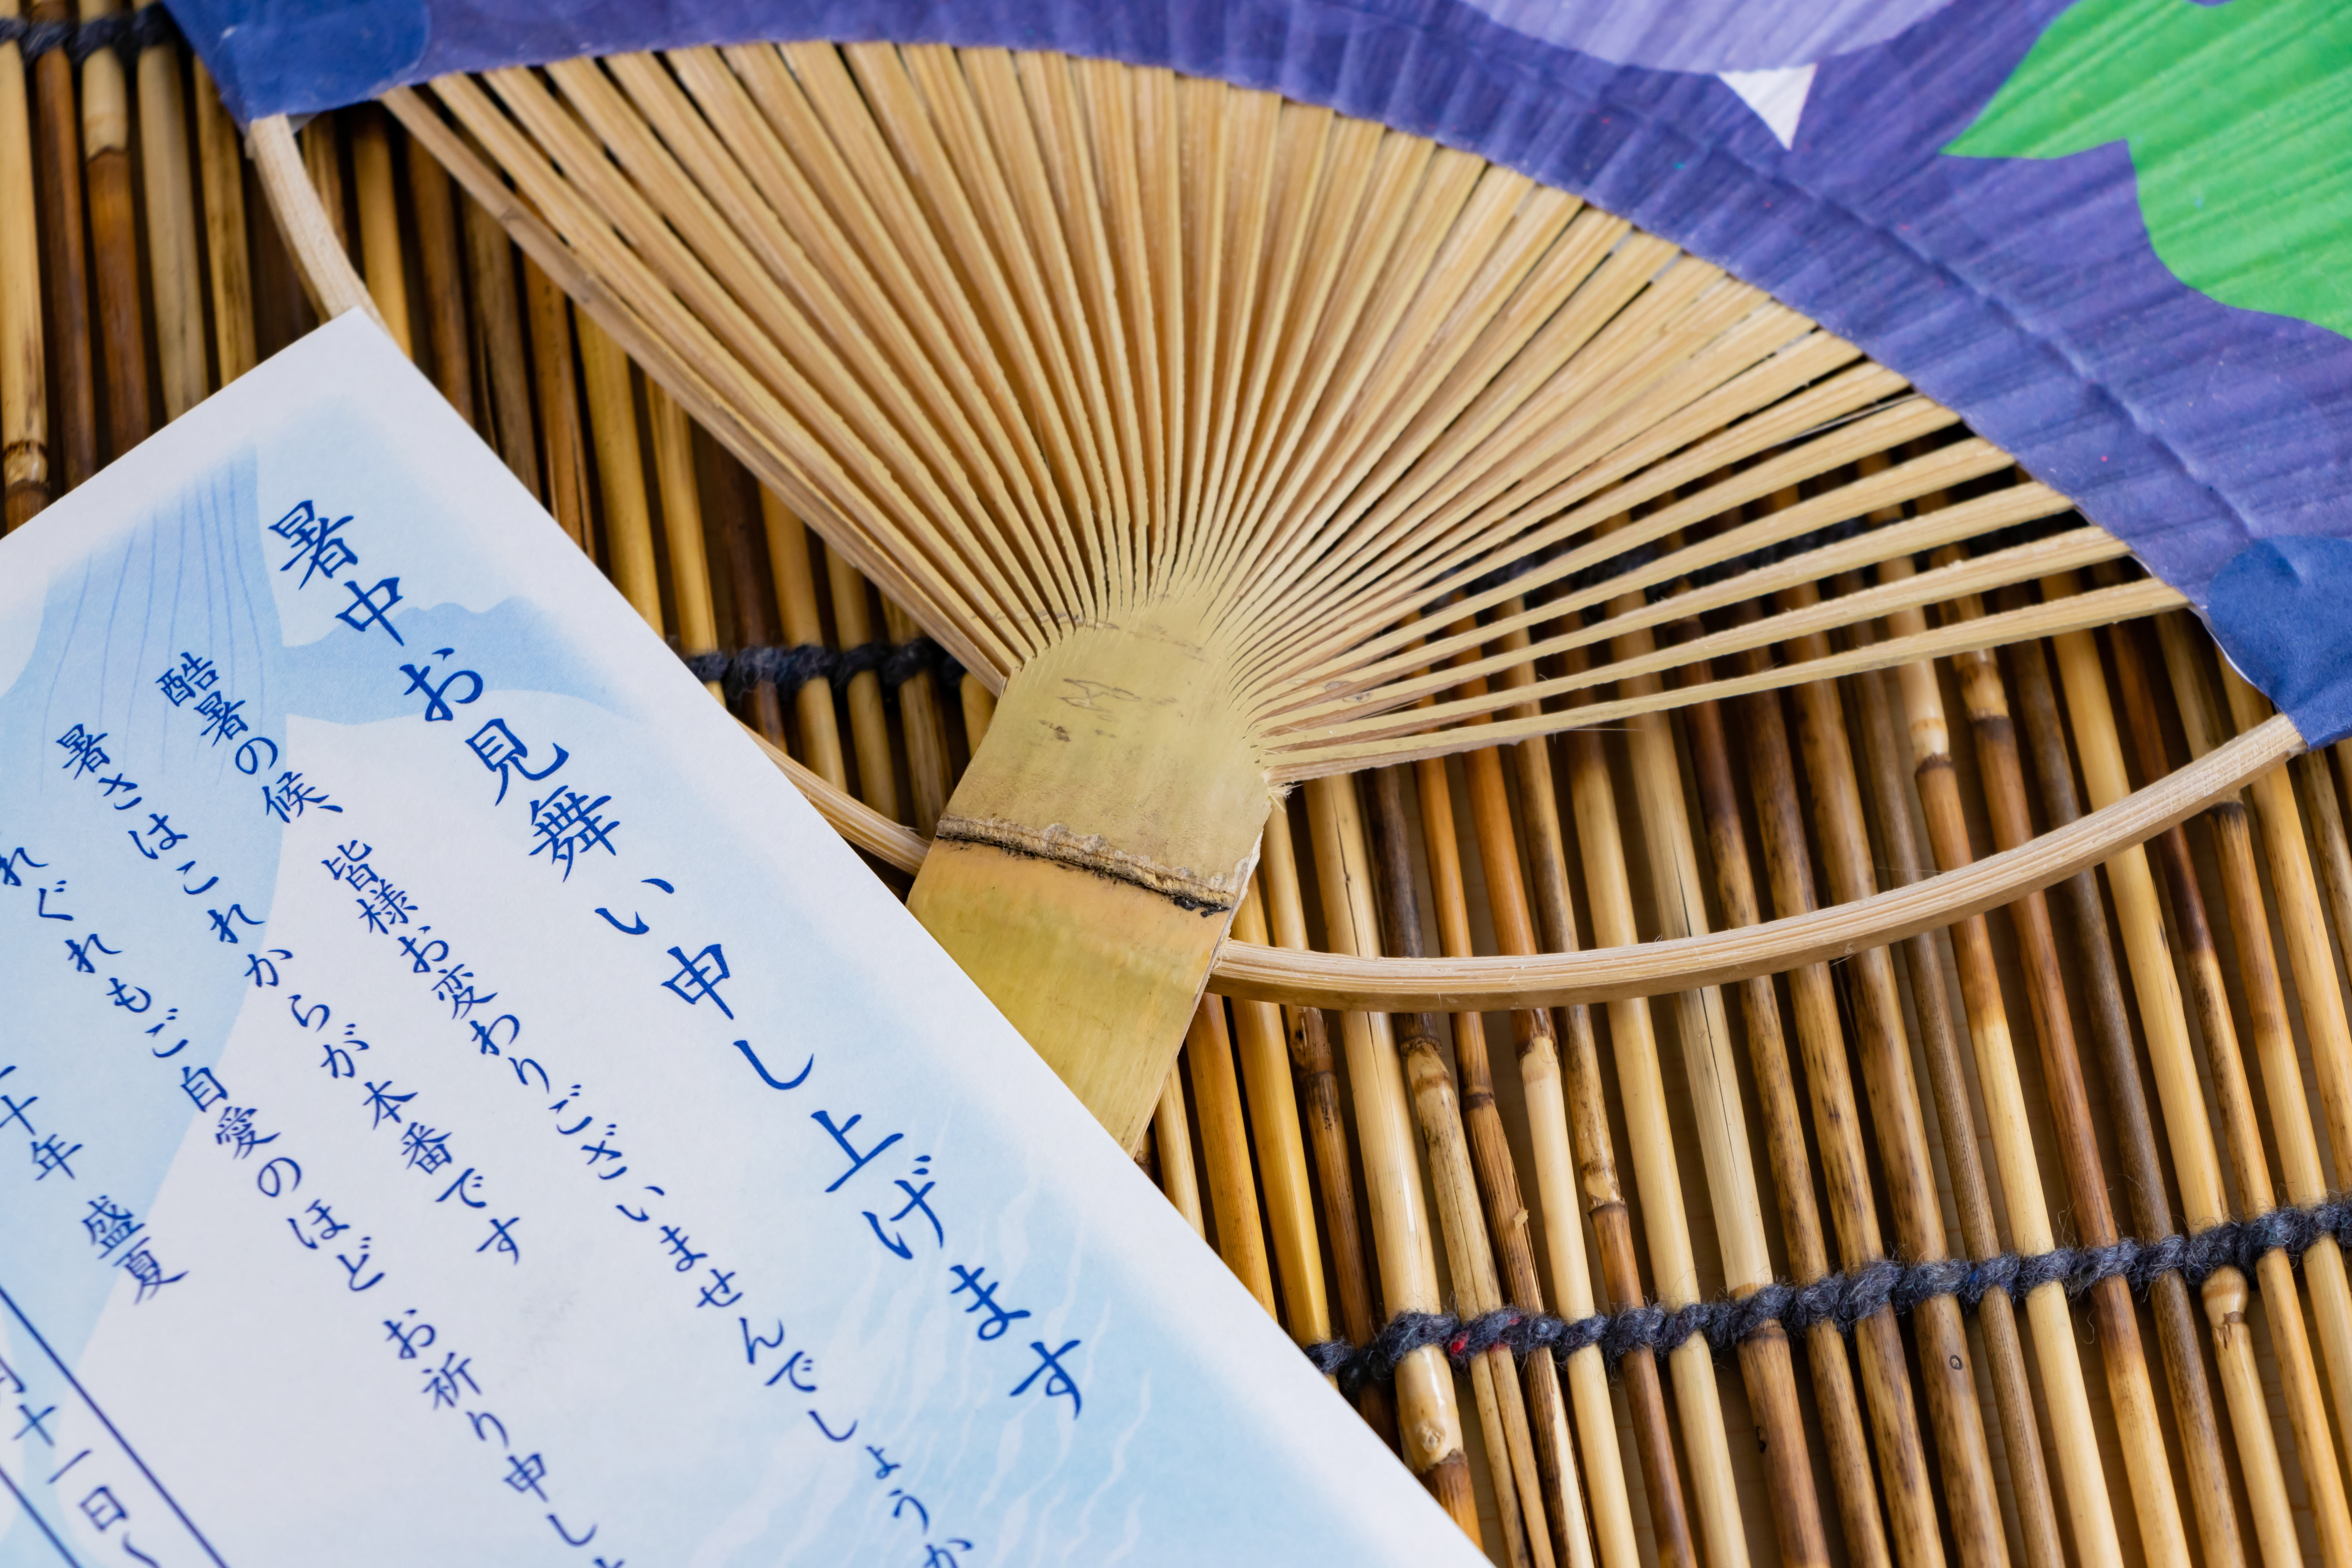 暑中お見舞い申し上げます
酷暑の候、皆様お変わりございませんでしょうか
暑さはこれからが本番です
れぐれもご自愛のほど お祈り申し
十年 盛夏
十一日～